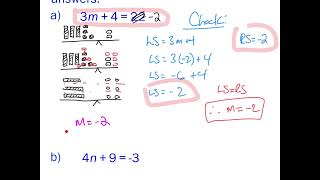 answers.
a) 3m + 4 = -2
Check:
LS = 3m+4
RS = -2
LS = 3(-2)+4
LS = -6 +4
LS = -2
LS=RS
∴ m = -2
m = -2
b) 4n + 9 = -3